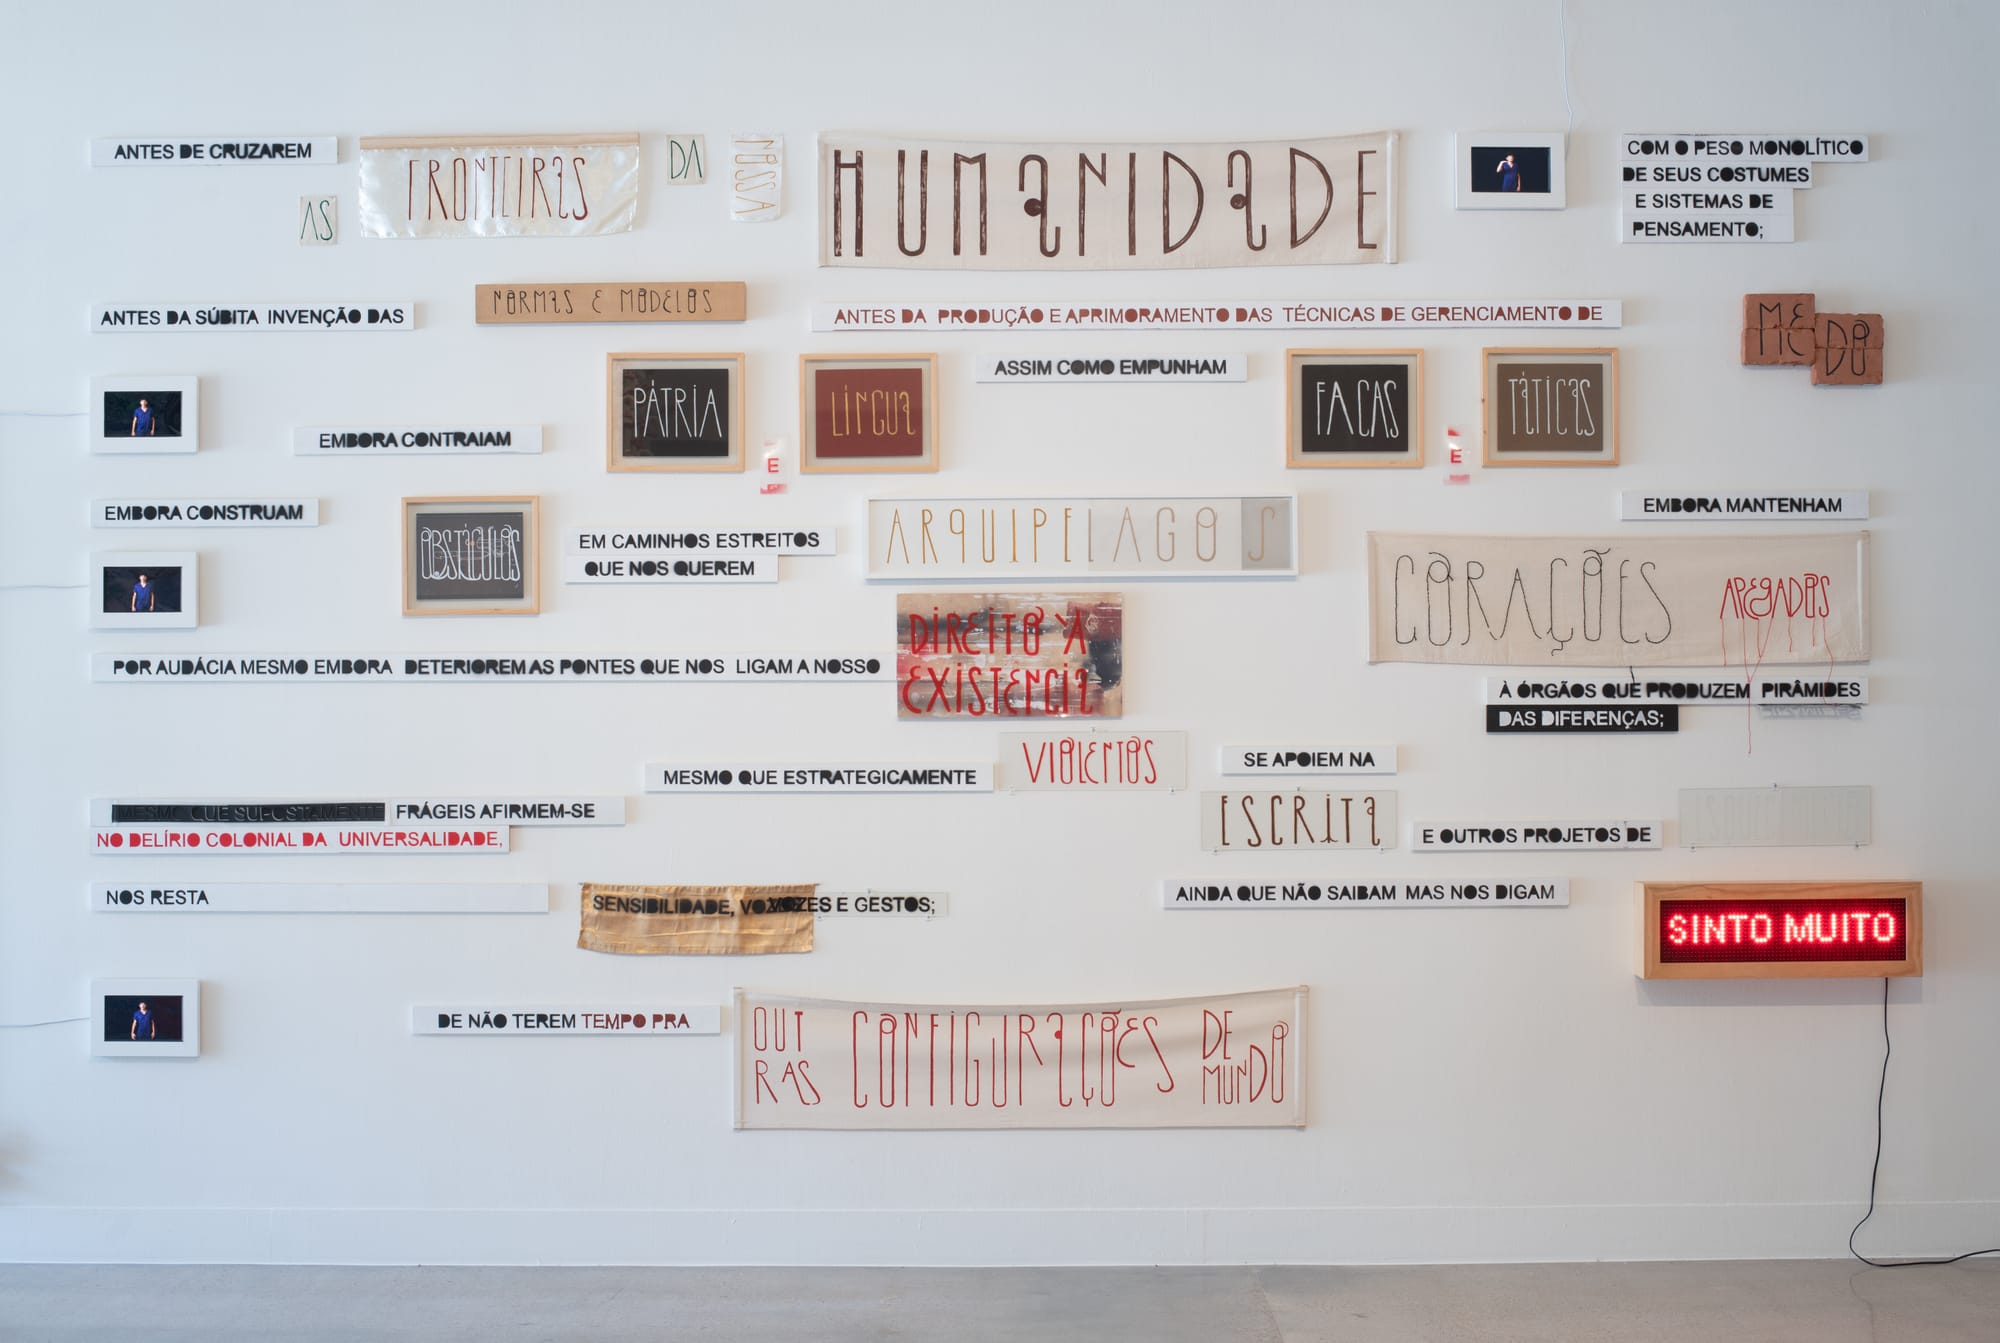 ANTES DE CRUZAREM
AS
FRONTEIRAS
DA
NOSSA
HUMANIDADE
COM O PESO MONOLÍTICO
DE SEUS COSTUMES
E SISTEMAS DE
PENSAMENTO;
ANTES DA SÚBITA INVENÇÃO DAS
NORMAS E MODELOS
ANTES DA PRODUÇÃO E APRIMORAMENTO DAS TÉCNICAS DE GERENCIAMENTO DE
MEDO
EMBORA CONTRAIAM
PÁTRIA
E
LÍNGUA
ASSIM COMO EMPUNHAM
FACAS
E
TÁTICAS
EMBORA CONSTRUAM
OBSTÁCULOS
EM CAMINHOS ESTREITOS
QUE NOS QUEREM
ARQUIPELAGOS
EMBORA MANTENHAM
CORAÇÕES APEGADOS
À ÓRGÃOS QUE PRODUZEM PIRÂMIDES
DAS DIFERENÇAS;
POR AUDÁCIA MESMO EMBORA DETERIOREM AS PONTES QUE NOS LIGAM A NOSSO
DIREITO À
EXISTÊNCIA
MESMO QUE ESTRATEGICAMENTE
VIOLENTOS
SE APOIEM NA
ESCRITA
E OUTROS PROJETOS DE
MESMO QUE SUPOSTAMENTE FRÁGEIS AFIRMEM-SE
NO DELÍRIO COLONIAL DA UNIVERSALIDADE,
NOS RESTA
SENSIBILIDADE, VOZES E GESTOS;
AINDA QUE NÃO SAIBAM MAS NOS DIGAM
SINTO MUITO
DE NÃO TEREM TEMPO PRA
OUTRAS CONFIGURAÇÕES DE MUNDO